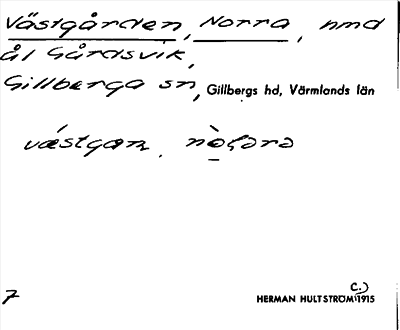 Västgården, Norra, hmd
ål Gårdsvik,
Gillberga sn, Gillbergs hd, Värmlands län
vǽstgaɳ. nò̱ɽərə
7
HERMAN HULTSTRÖM (C.) 1915